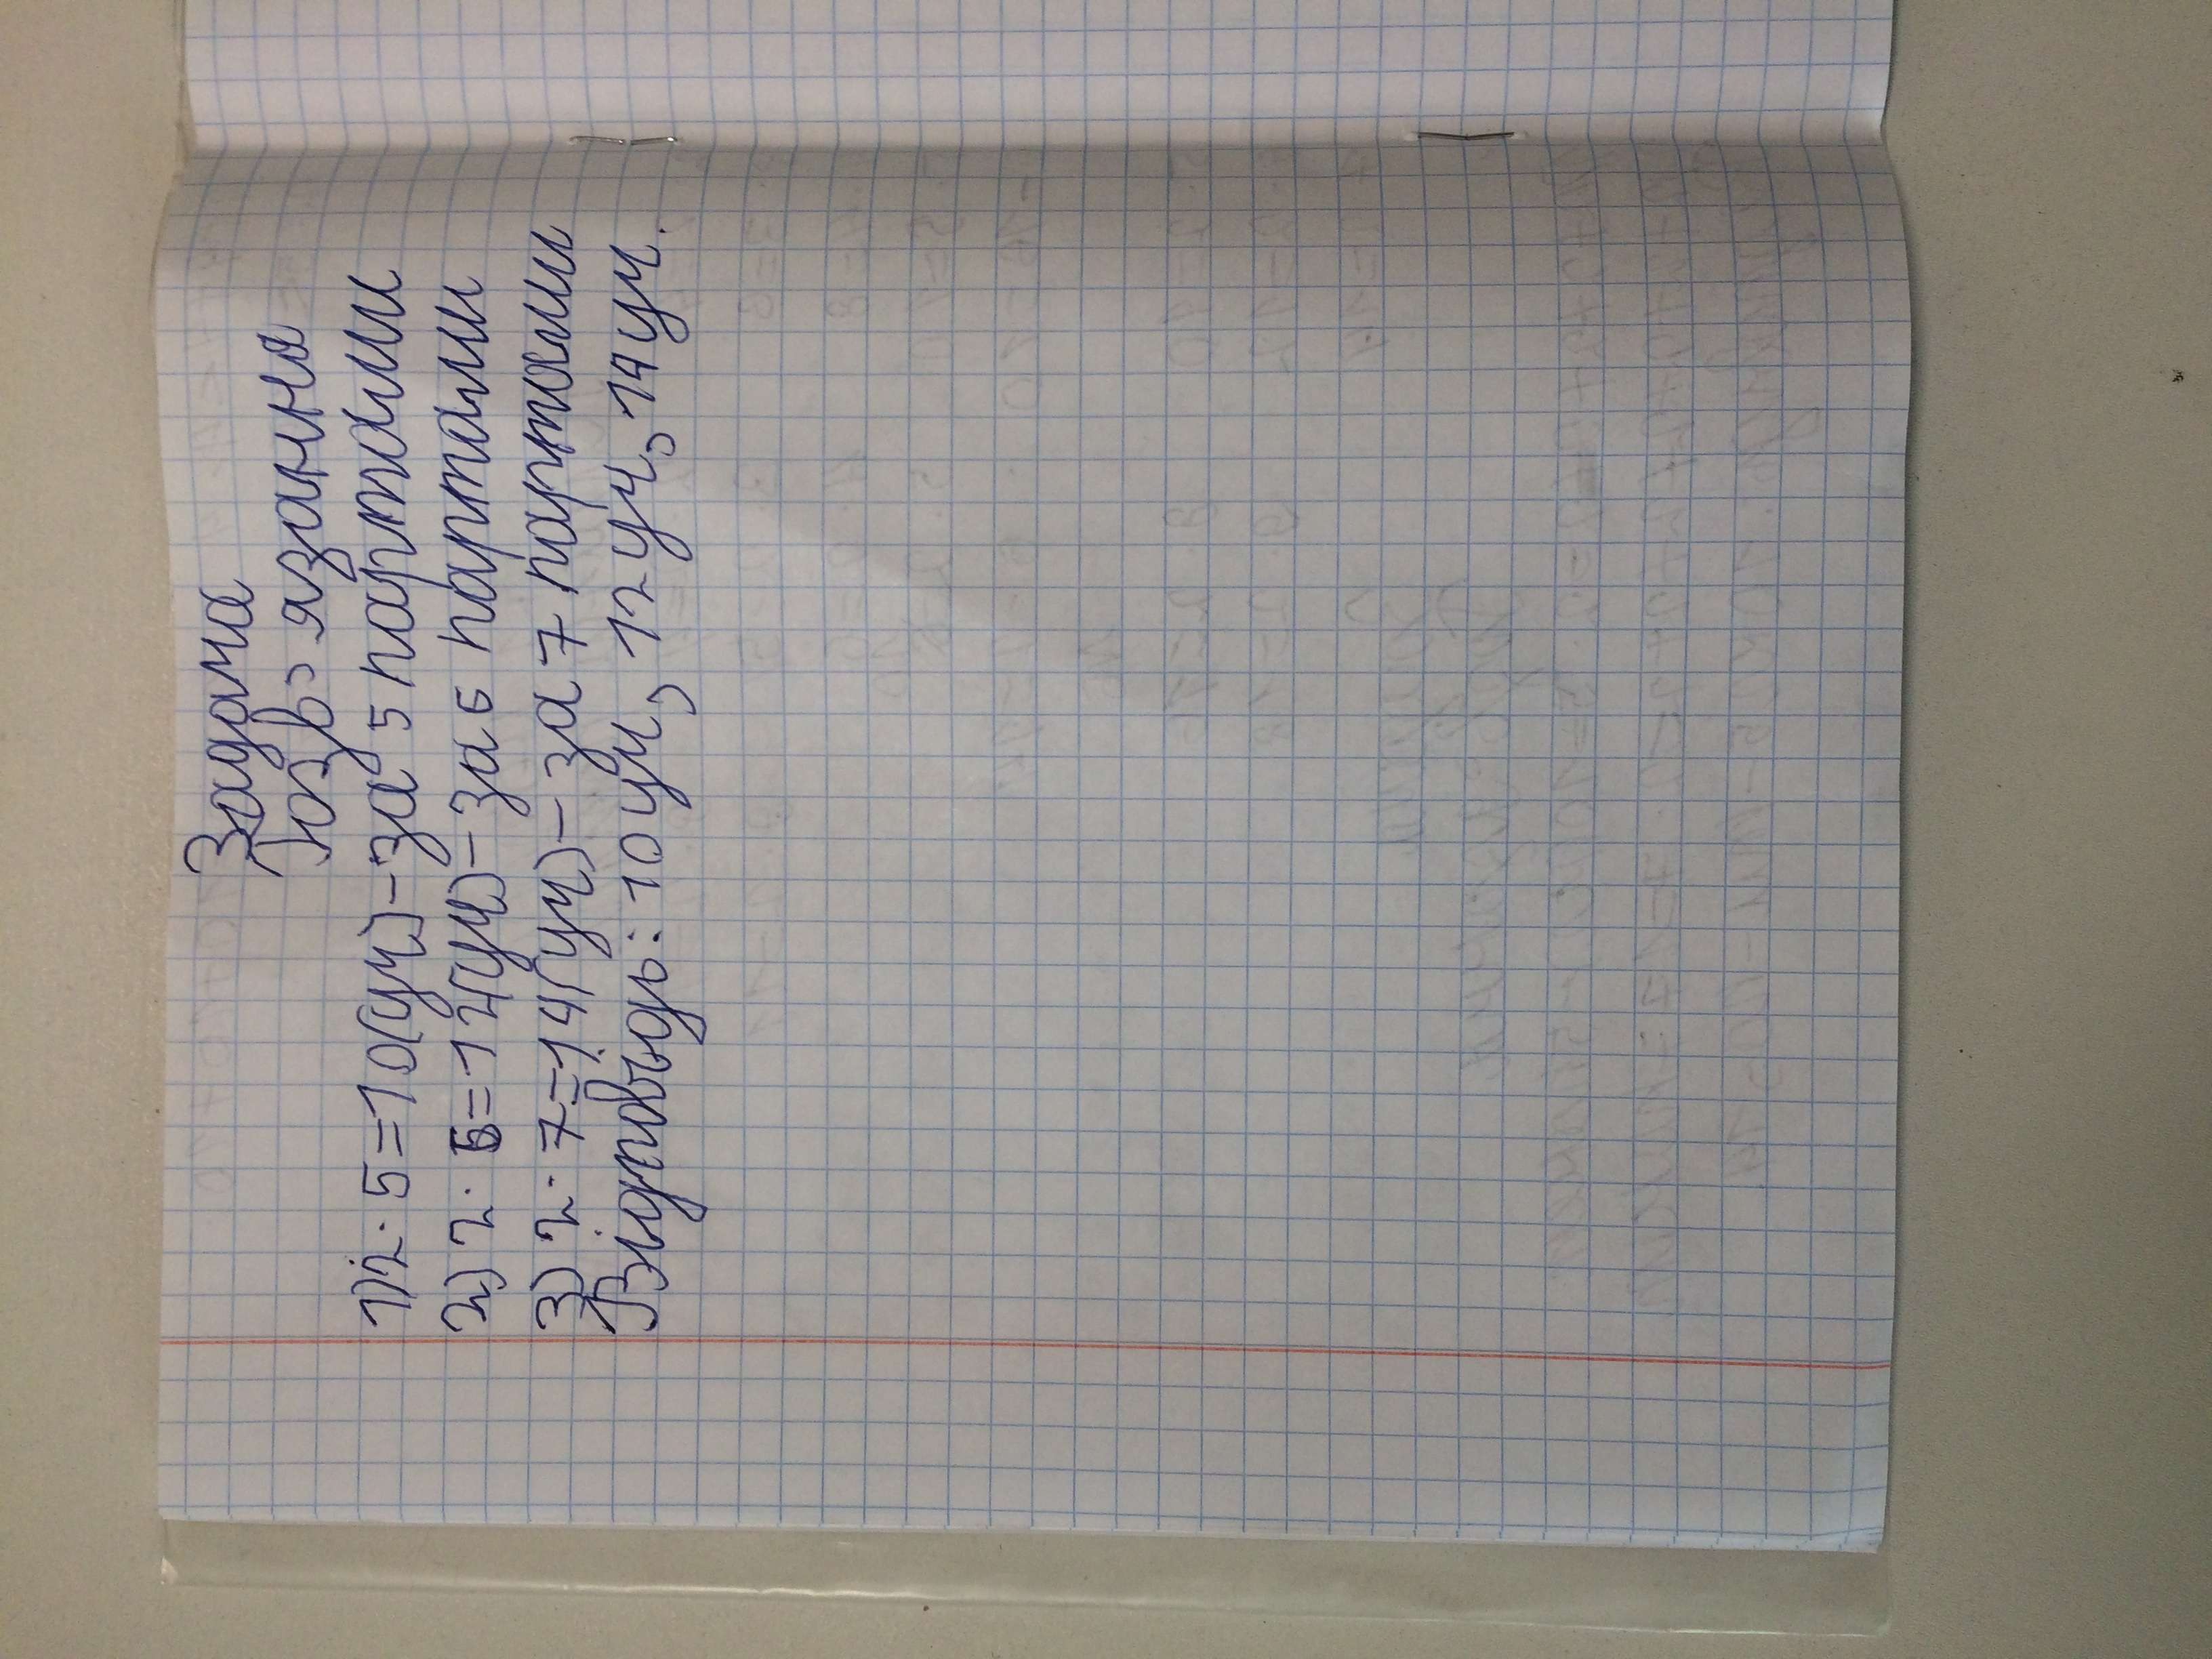 Задача
Розв'язання
1) 2 · 5 = 10 (уч) - за 5 партами
2) 2 · 6 = 12 (уч) - за 6 партами
3) 2 · 7 = 14 (уч) - за 7 партами
Відповідь: 10 уч, 12 уч, 14 уч.